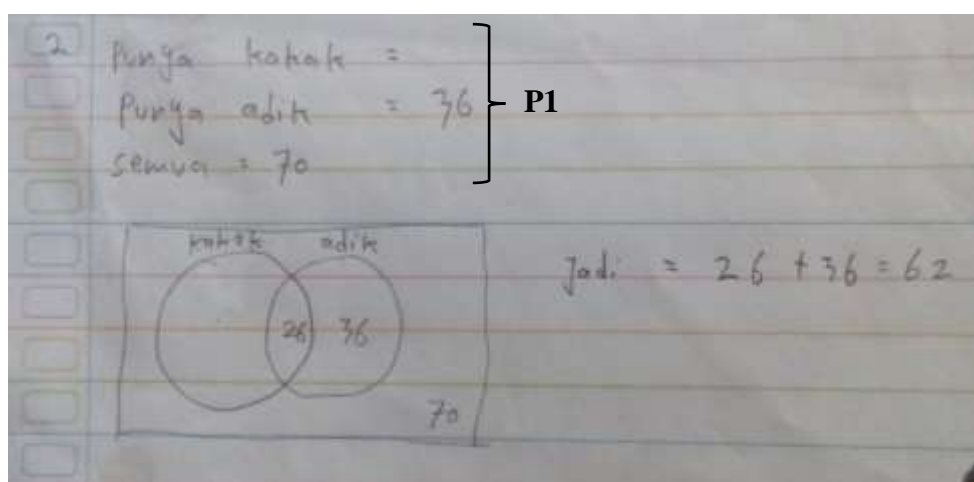 2
Punya kakak =
Punya adik = 36
semua = 70
P1
kakak adik
26 36
70
Jadi = 26 + 36 = 62